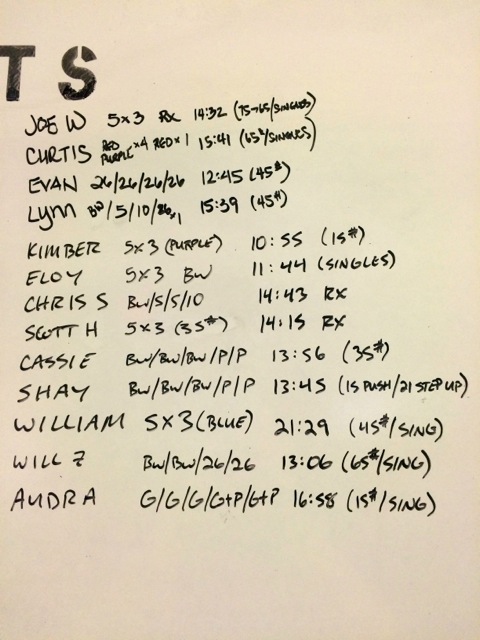 TS
JOE W 5x3 RX 14:32 (75→65/SINGLES)
CURTIS RED PURPLE x4 RED x1 15:41 (65#/SINGLES)
EVAN 26/26/26/26 12:45 (45#)
LYNN BW/5/10/ x1 15:39 (45#)
KIMBER 5x3 (PURPLE) 10:55 (15#)
ELOY 5x3 BW 11:44 (SINGLES)
CHRIS S BW/5/5/10 14:43 RX
SCOTT H 5x3 (35#) 14:15 RX
CASSIE BW/BW/BW/P/P 13:56 (35#)
SHAY BW/BW/BW/P/P 13:45 (15 PUSH/21 STEP UP)
WILLIAM 5x3 (BLUE) 21:29 (45#/SING)
WILL Z BW/BW/26/26 13:06 (65#/SING)
AUDRA G/G/G/G+P/G+P 16:58 (15#/SING)